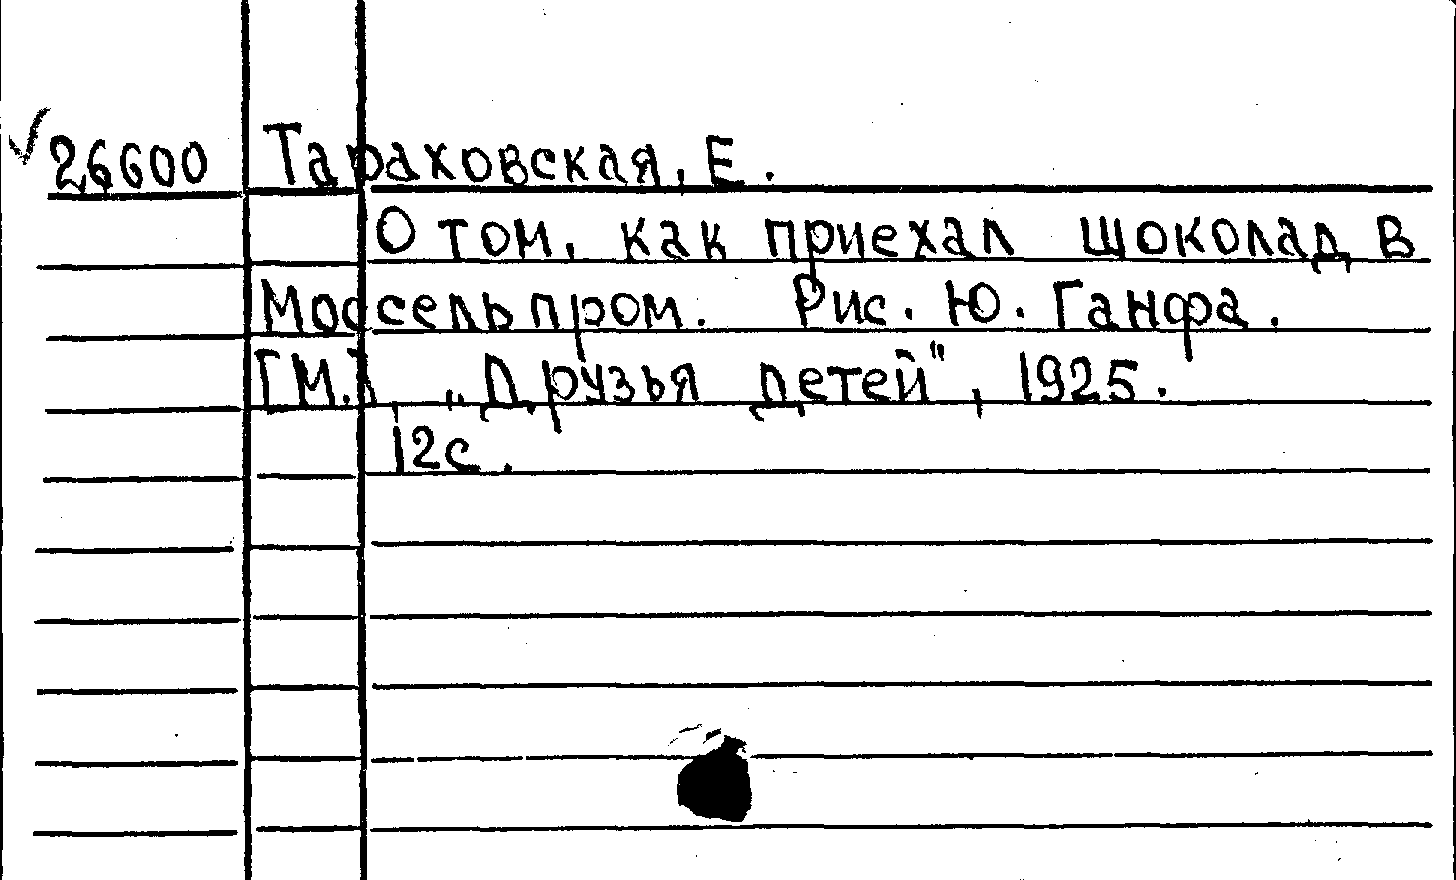 26600 Тараховская, Е.
О том, как приехал шоколад в
Моссельпром. Рис. Ю. Ганфа.
[М.], „Друзья детей", 1925.
12с.